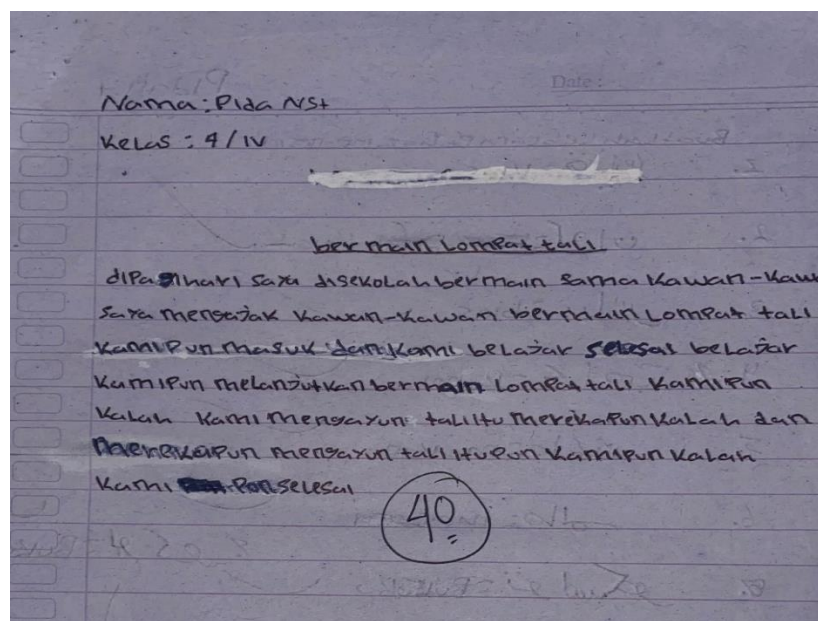 Date :
Nama : Pida NSt
Kelas : 4 / IV
bermain lompat tali
dipagihari saya disekolah bermain sama kawan-kaw
saya mengajak kawan-kawan bermain lompat tali
kamipun masuk dan kami belajar selesai belajar
kamipun melanjutkan bermain lompat tali kamipun
kalah kami mengayun tali itu merekapun kalah dan
merekapun mengayun tali itupun kamipun kalah
kami pun selesai
40